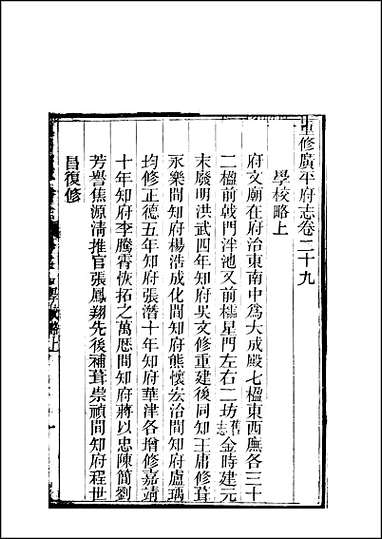 重修廣平府志卷二十九
學校略上
府文廟在府治東南中爲大成殿七楹東西廡各三十
二楹前戟門泮池又前櫺星門左右二坊舊志金時建元
末廢明洪武四年知府吳文修重建後同知王庸修葺
永樂間知府楊浩成化間知府熊懷宏治間知府盧瑀
均修正德五年知府張潛十年知府華津各增修嘉靖
十年知府李騰霄恢拓之萬厯間知府蔣以忠陳簡劉
芳譽焦源清推官張鳳翔先後補葺崇禎間知府程世
昌復修
學校略上